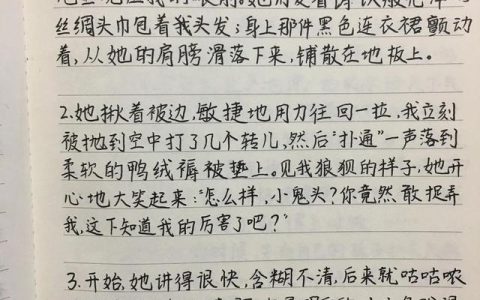 丝绸头巾包着我头发；身上那件黑色连衣裙颤动
着，从她的肩膀滑落下来，铺散在地板上。
2.她揪着被边，敏捷地用力往回一拉，我立刻
被抛到空中打了几个转儿，然后“扑通”一声落到
柔软的鸭绒褥被垫上。见我狼狈的样子，她开
心地大笑起来：“怎么样，小鬼头？你竟然敢捉弄
我，这下知道我的厉害了吧？”
3.开始，她讲得很快，含糊不清，后来就咕咕哝